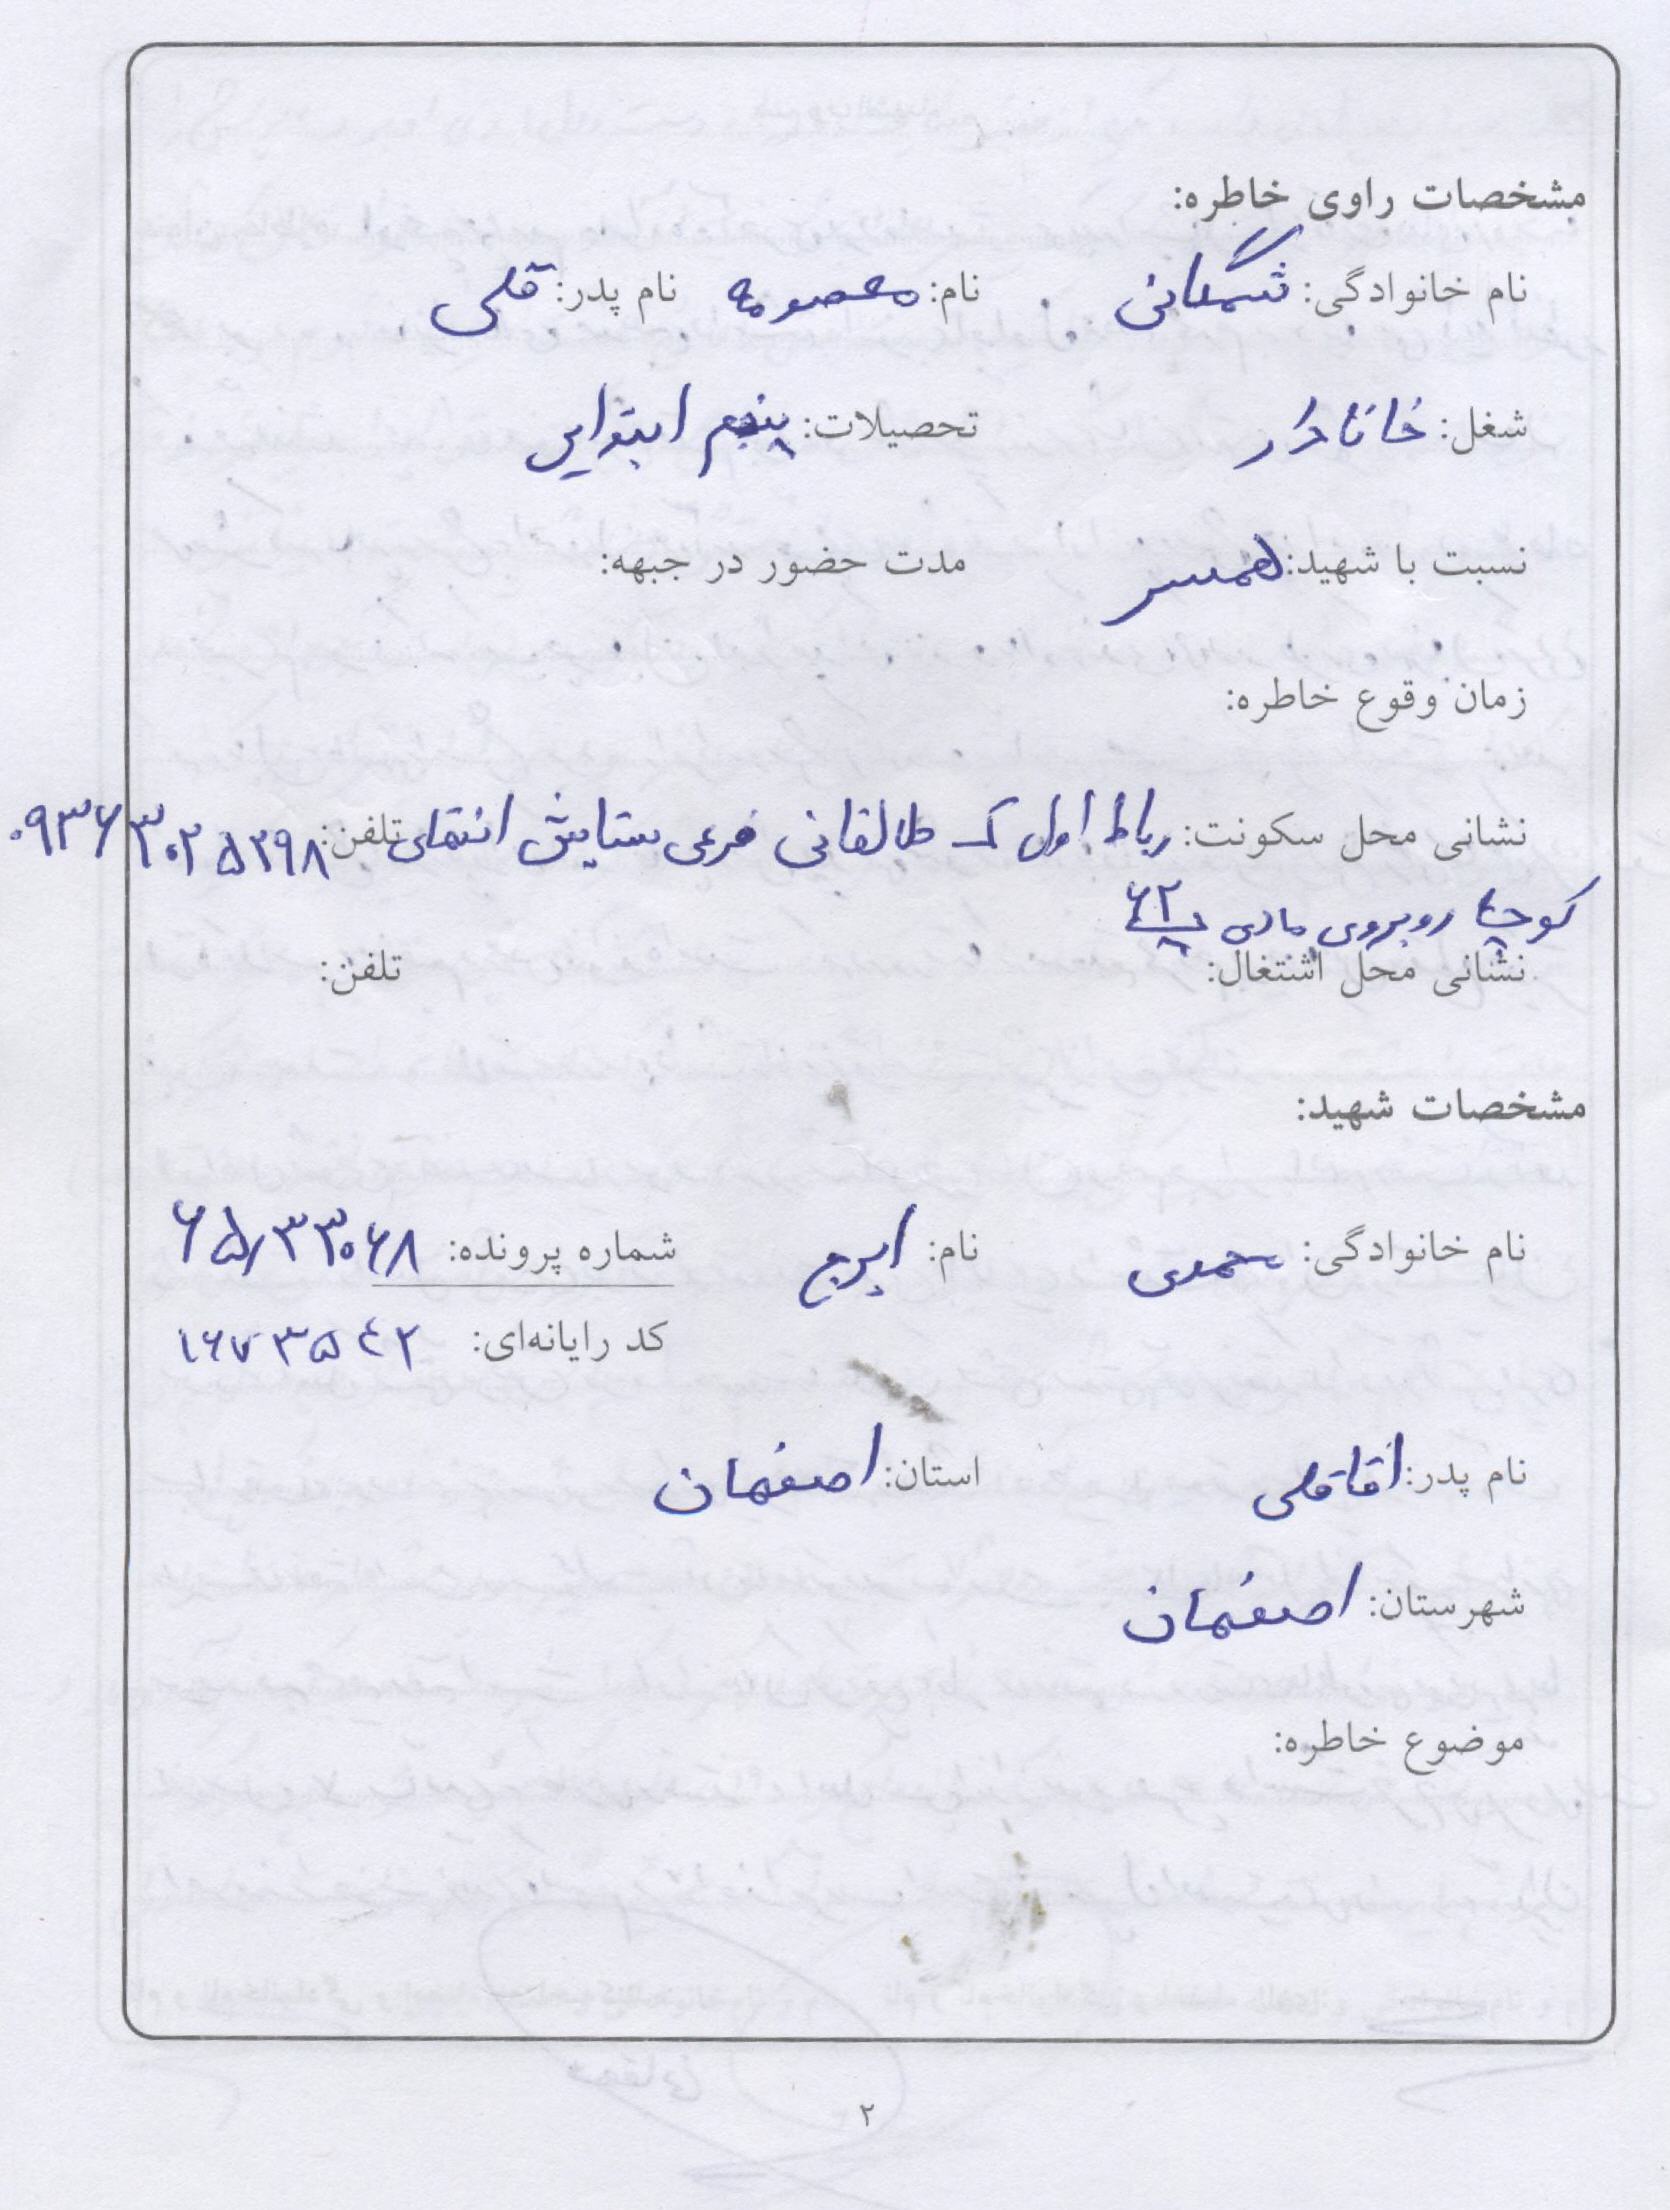 مشخصات راوی خاطره:
نام خانوادگی: نام: معصومه نام پدر: قلی
شغل: خانادار تحصیلات: پنجم ابتدایی
نسبت با شهید: همسر مدت حضور در جبهه:
زمان وقوع خاطره:
نشانی محل سکونت: رباط اول ک طالقانی فرعی ستایش انتهای تلفن: ۰۹۳۶۳۰۲۵۲۹۸
کوچه روبروی مادی پ ۶۲
نشانی محل اشتغال: تلفن:
مشخصات شهید:
نام خانوادگی: نام: ایرج شماره پرونده: ۶۵٫۳۳۰۶۸
کد رایانه‌ای: ۱۶۷۳۵۴۲
نام پدر: اقاقلی استان: اصفهان
شهرستان: اصفهان
موضوع خاطره:
۲